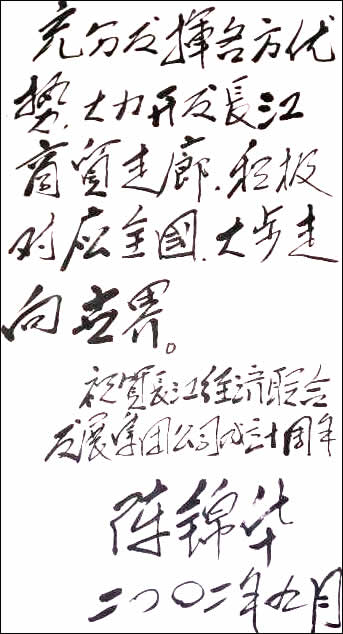 充分发揮各方优
势.大力开发長江
商貿走廊.积极
对应全國.大步走
向世界。
祝賀長江经济联合
发展集团公司成立十周年
陈锦华
二〇〇二年九月